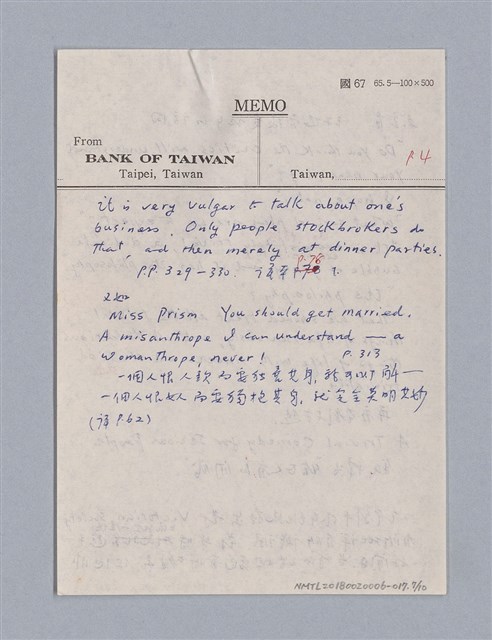 國 67 65.5—100×500
MEMO
From
BANK OF TAIWAN
Taipei, Taiwan
Taiwan,
P.4
it is very vulgar to talk about one's
business. Only people stockbrokers do
that, and then merely at dinner parties.
P.P. 329—330. P.76
Miss Prism You should get married.
A misanthrope I can understand — a
womanthrope, never! P. 313
一個人恨人類而要獨善其身，我可以了解—
一個人恨女人而要獨抱其身，我完全莫明其妙
(譯 P.62)
NMTL20180020006-017.7/10